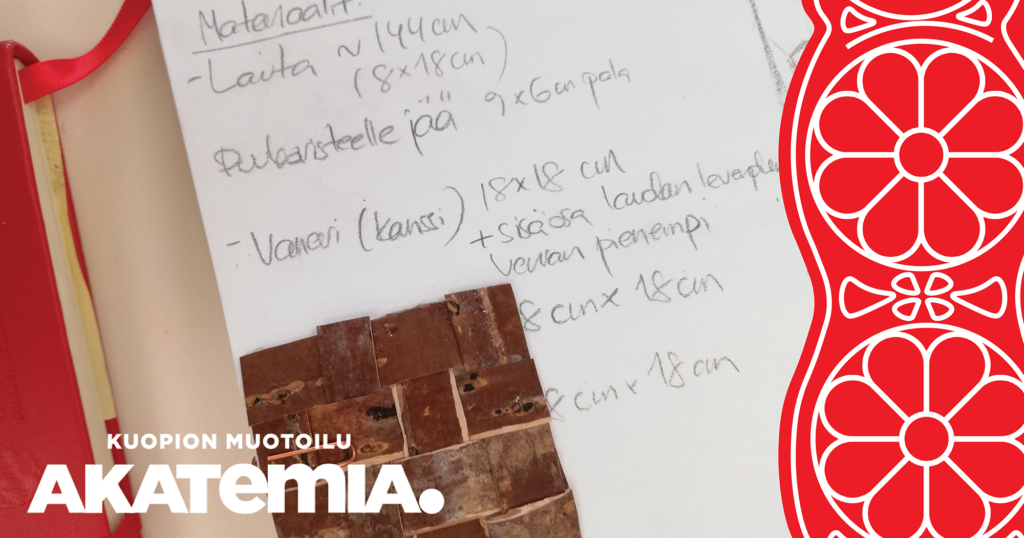 Materiaalit:
- Lauta ~ 144 cm
(8 x 18 cm)
Puukaisteelle jää 9 x 6 cm pala
- Vaneri (kansi) 18 x 18 cm
+ sisäosa laudan
verran pienempi
8 cm x 18 cm
8 cm x 18 cm
KUOPION MUOTOILU
AKATEMIA.